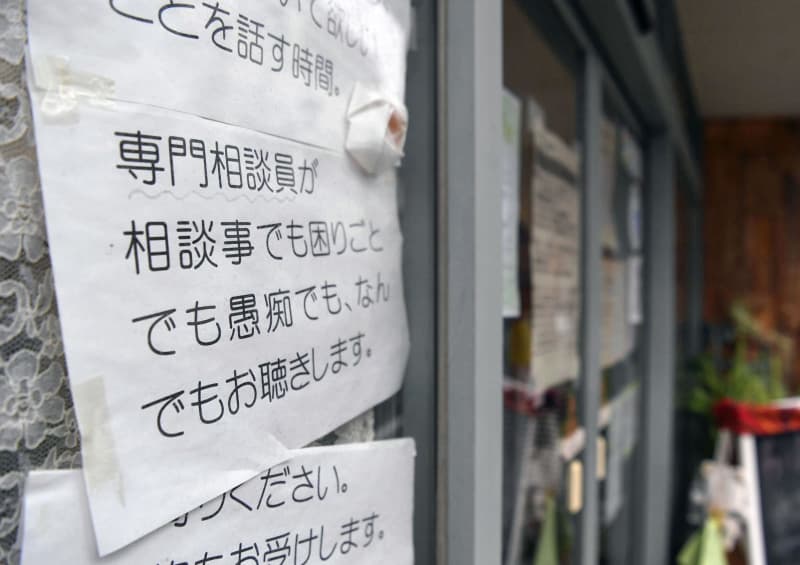 ことを話す時間。
専門相談員が
相談事でも困りごと
でも愚痴でも、なん
でもお聴きします。
ください。
もお受けします。